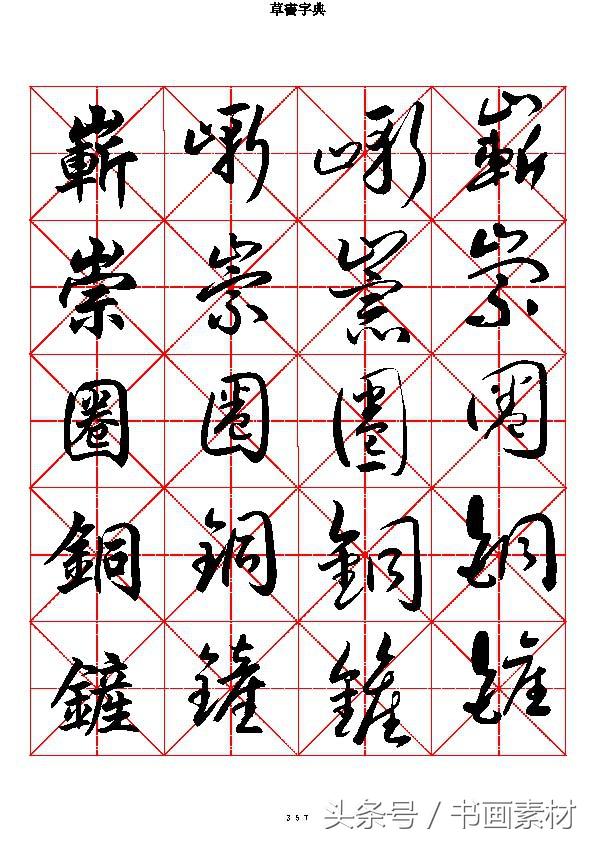 草書字典
嶄 嶄 嶄 嶄
崇 崇 崇 崇
圈 圈 圈 圈
銅 銅 銅 銅
鏟 鏟 鏟 鏟
357
头条号 / 书画素材